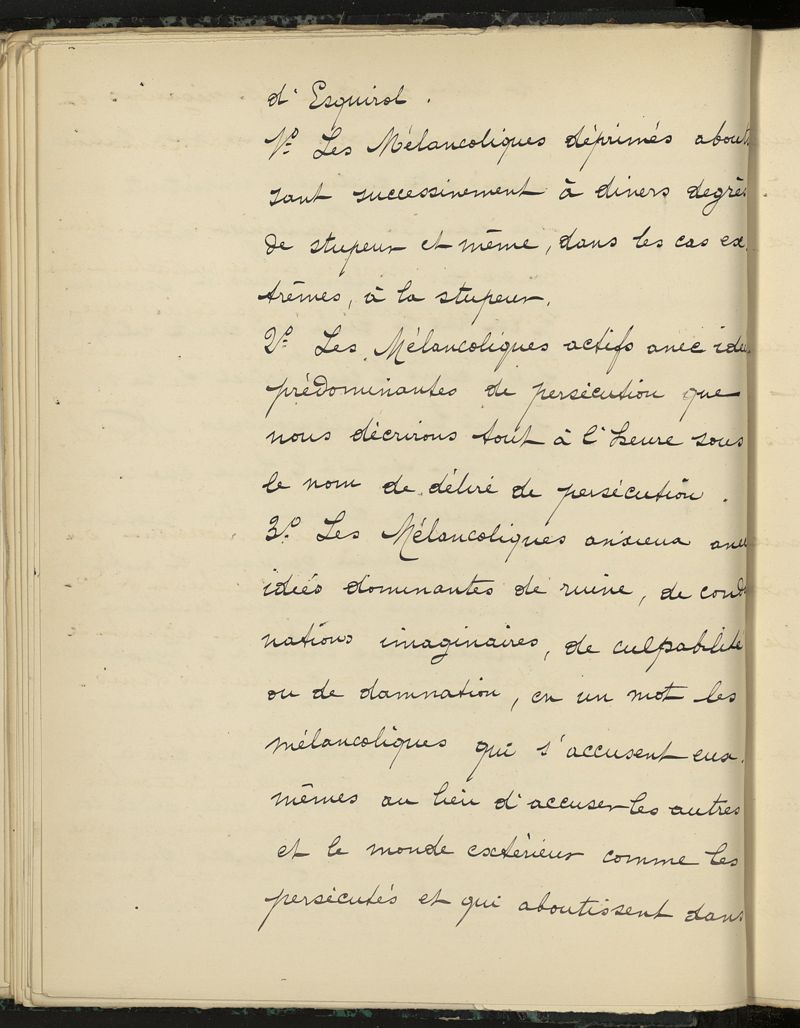 d'Esquirol.
1º Les Mélancoliques déprimés about
sant successivement à divers degrés
de stupeur et même, dans les cas ex-
trêmes, à la stupeur.
2º Les Mélancoliques actifs avec idée
prédominantes de persécution que
nous décrirons tout à l'heure sous
le nom de délire de persécution.
3º Les Mélancoliques anxieux avec
idées dominantes de ruine, de cond
nations imaginaires, de culpabilité
ou de damnation, en un mot les
mélancoliques qui s'accusent eux-
mêmes au lieu d'accuser les autres
et le monde extérieur comme les
persécutés et qui aboutissent dans